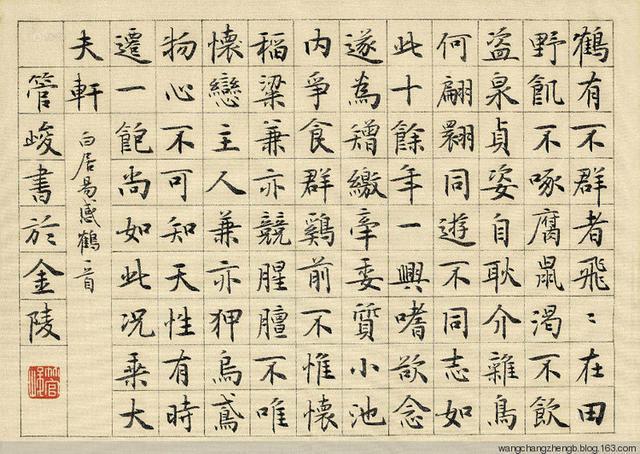 鶴有不群者飛〻在田
野飢不啄腐鼠渴不飲
盗泉貞姿自耿介雜鳥
何翩翾同遊不同志如
此十餘年一興嗜欲念
遂為矰繳牽委質小池
内爭食群鷄前不惟懷
稻粱兼亦競腥膻不唯
懷戀主人兼亦狎烏鳶
物心不可知天性有時
遷一飽尚如此况乘大
夫軒 白居易感鶴一首
管峻書於金陵
管峻
wangchangzhengb.blog.163.com